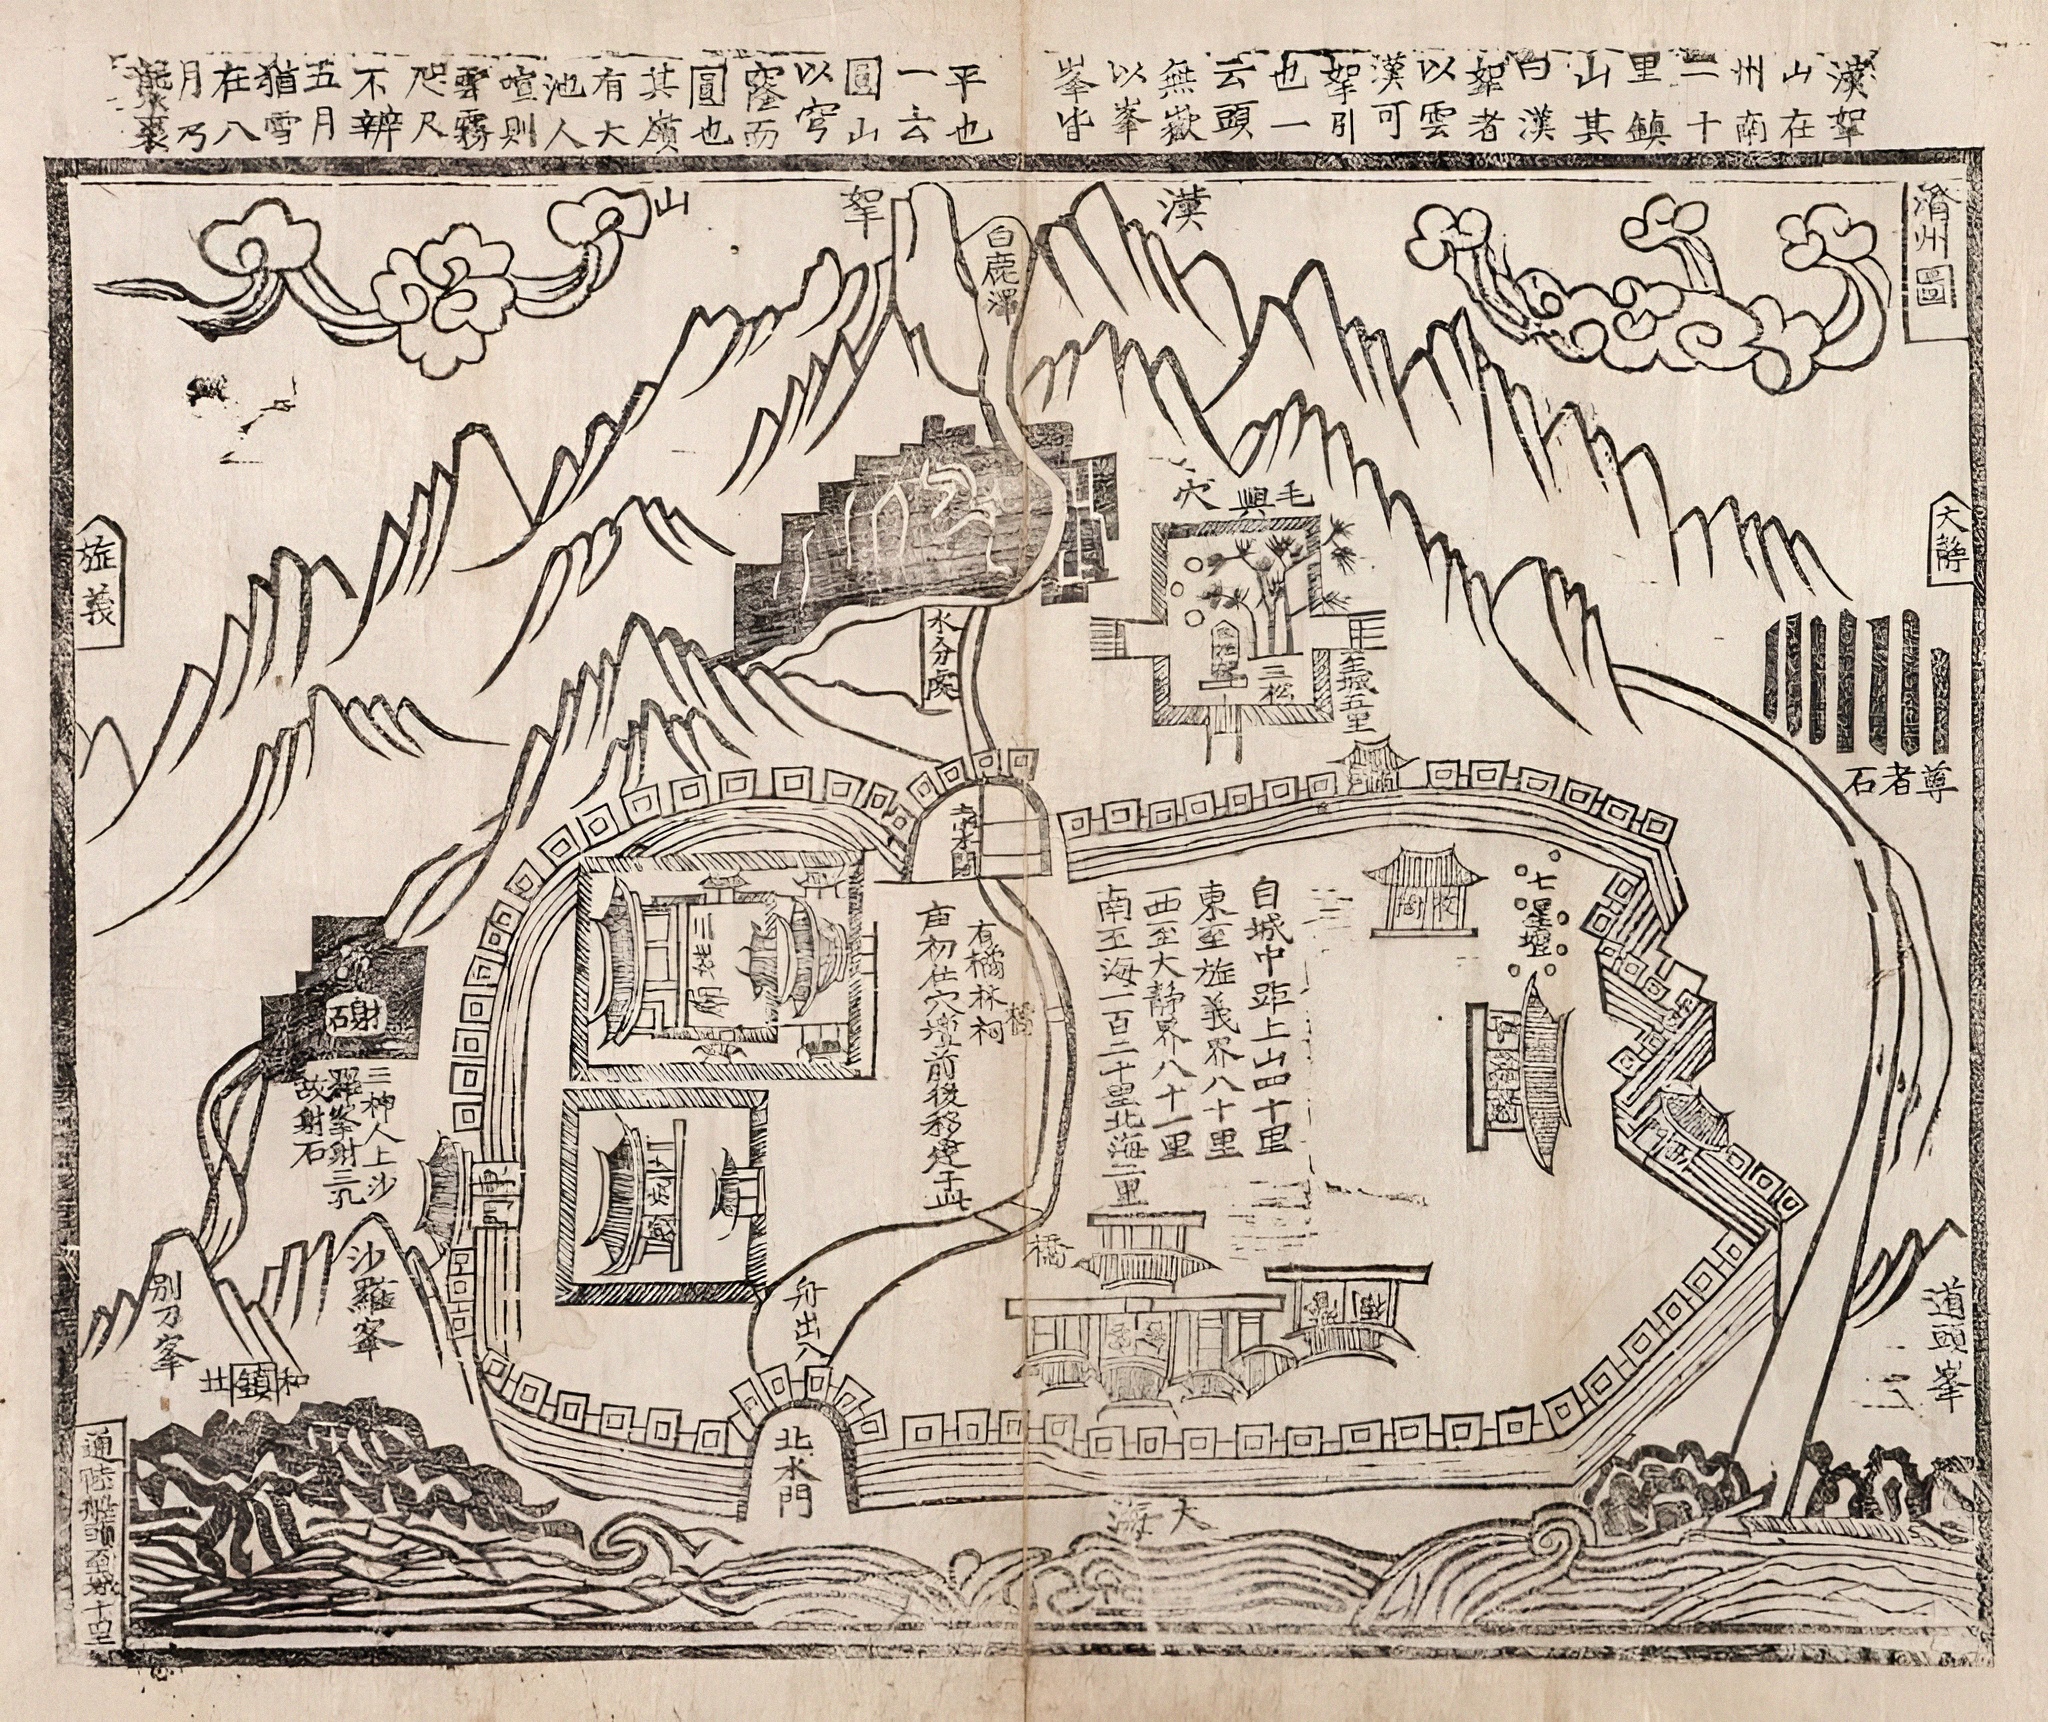 漢拏
山在
州南
二十
里鎮
山其
曰漢
拏者
以雲
漢可
拏引
也一
云頭
無嶽
以峯
峯皆
平也
一云
圓山
以穹
窿而
圓也
其嶺
有大
池人
喧則
雲霧
咫尺
不辨
五月
猶雪
在八
月乃
襲裘
濟州圖
漢拏山
白鹿潭
大靜
旌義
毛興穴
三松
至城五里
尊者石
水分處
七星壇
自城中距上山四十里
東至旌義界八十里
西至大靜界八十一里
南至海一百二十里北海二里
有橘林祠
橋
三姓廟
射石
三神人上沙
羅峯射三孔
故射石
沙羅峯
別刀峯
舟出入
橋
北水門
道頭峯
大海